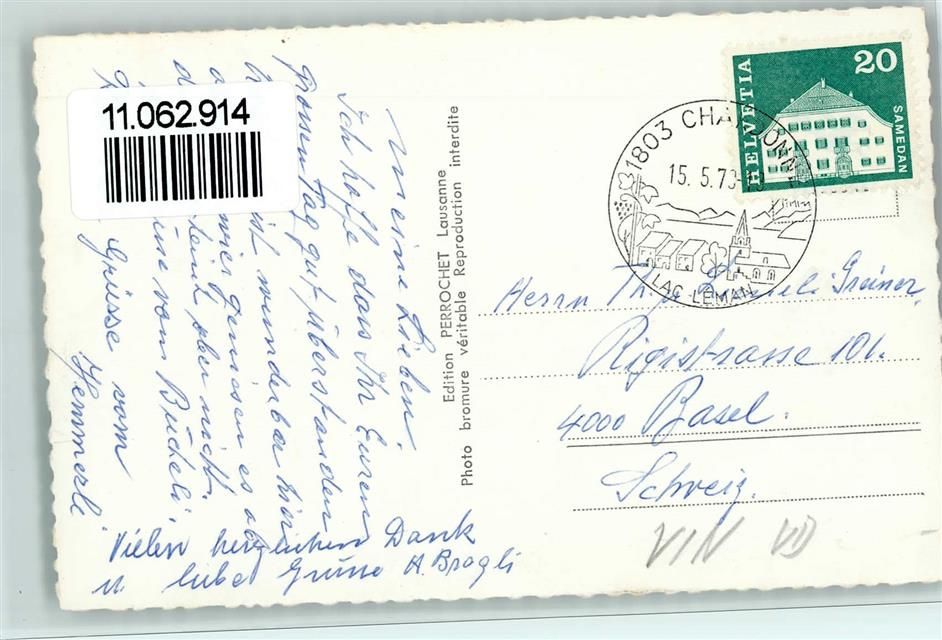 11.062.914
Meine Lieben.
Ich hoffe dass Ihr Euren
grossen Tag gut überstanden
ist wunderbar hier
wir geniessen es
aber nicht
vom Bücheli
Grüsse vom
Hemmerli
Vielen herzlichen Dank
u. liebe Grüsse A. Brogli
Edition PERROCHET Lausanne
Photo bromure véritable Reproduction interdite
HELVETIA
20
SAMEDAN
1803 CHARDONNE
15. 5. 73
LAC LEMAN
Herrn Th. Greiner
Rigistrasse 101.
4000 Basel.
Schweiz.
VIN VD